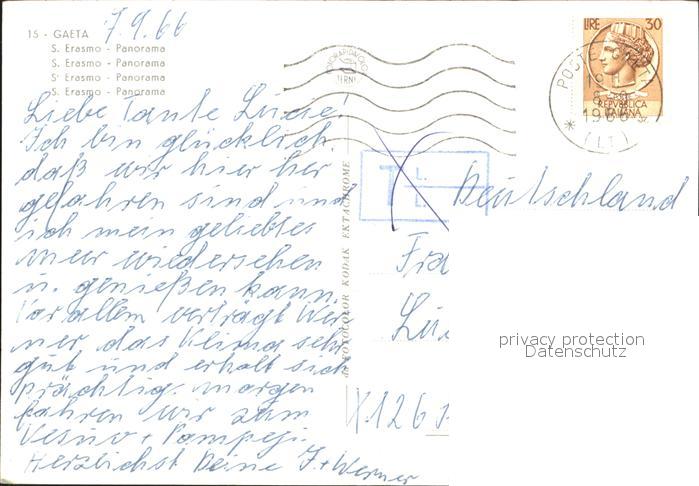 15 - GAETA
S. Erasmo - Panorama
S. Erasmo - Panorama
Sᵗ Erasmo - Panorama
S. Erasmo - Panorama
7.9.66
Liebe Tante Lucie!
Ich bin glücklich
daß wir hier her
gefahren sind und
ich mein geliebtes
Meer wiedersehen
u. genießen kann.
Vor allem verträgt Wer
ner das Klima sehr
gut und erholt sich
prächtig. Morgen
fahren wir zum
Vesuv + Pompeji.
Herzlichst Deine J. + Werner
FOTOCOLOR KODAK EKTACHROME
LIRE 30
REPVBBLICA
ITALIANA
POSTE
1966
(LT)
T
Deutschland
Fra
Luc
X 126
privacy protection
Datenschutz